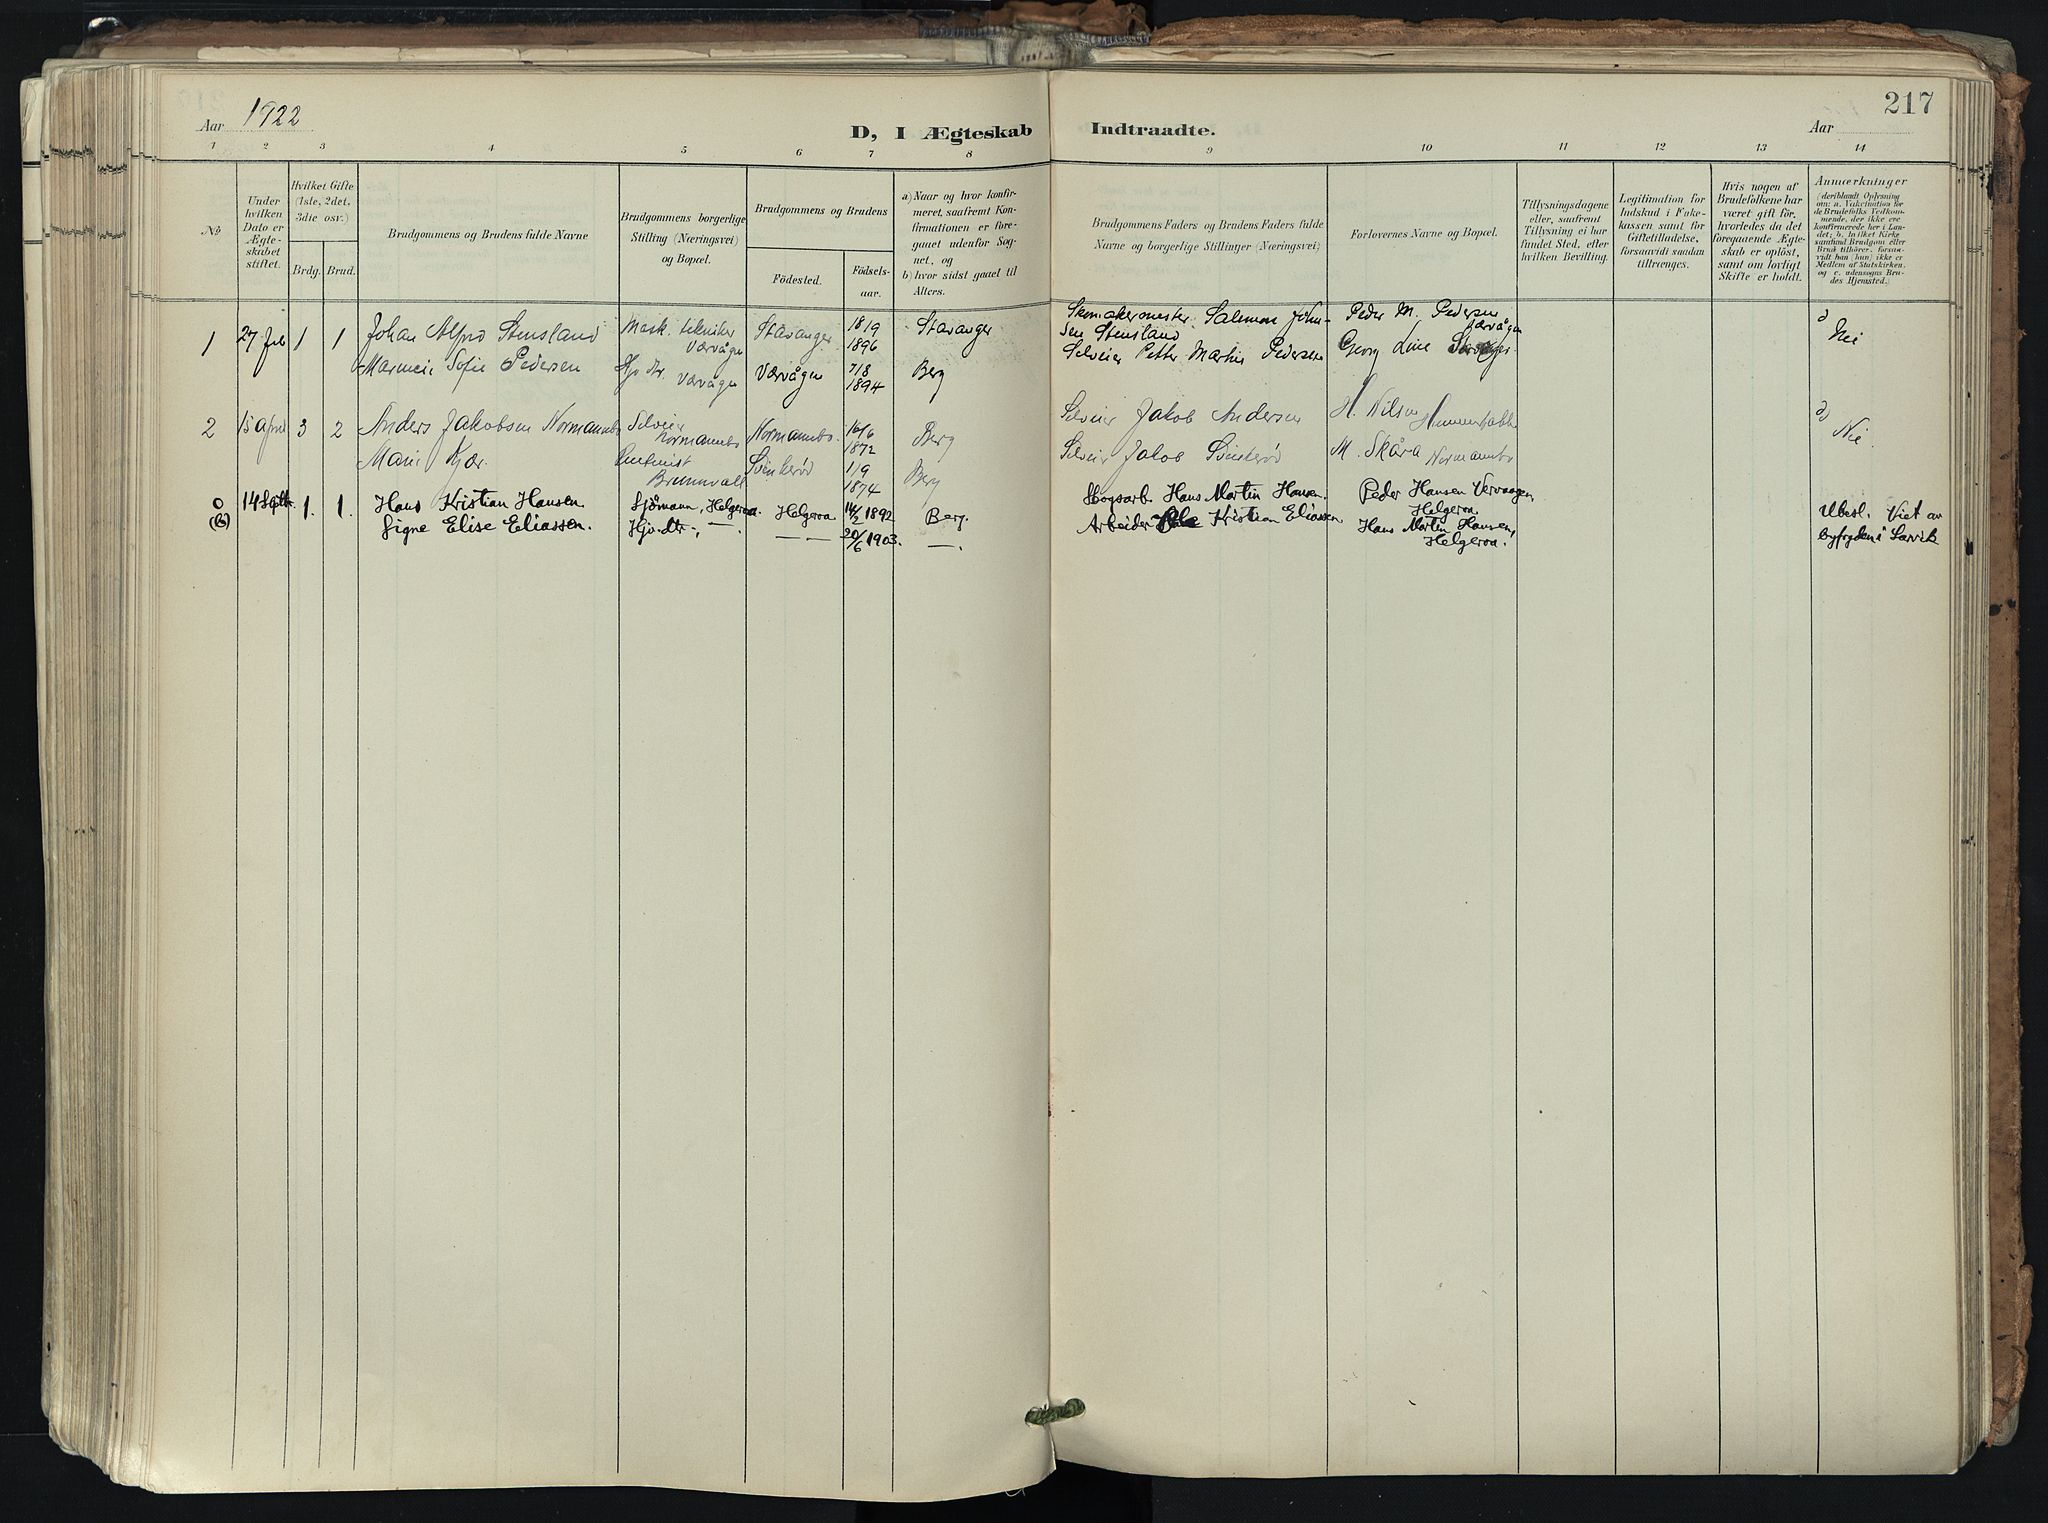 Aar 1922
D, I Ægteskab Indtraadte.
217
Aar
1 2 3 4 5 6 7 8 9 10 11 12 13 14
No
Under hvilken Dato er Ægteskabet stiftet.
Hvilket Gifte (1ste, 2det, 3die osv.)
Brdg. Brud.
Brudgommens og Brudens fulde Navne
Brudgommens borgerlige Stilling (Næringsvei) og Bopæl.
Brudgommens og Brudens
Fødested.
Fødselsaar.
a) Naar og hvor konfirmeret, saafremt Konfirmationen er foregaaet udenfor Sognet, og
b) hvor sidst gaaet til Alters.
Brudgommens Faders og Brudens Faders fulde Navne og borgerlige Stillinger (Næringsvei)
Forlovernes Navne og Bopæl.
Tillysningsdagene eller, saafremt Tillysning ei har fundet Sted, efter hvilken Bevilling.
Legitimation for Indskud i Enkekassen samt for Giftetilladelse, forsaavidt saadan tiltrænges.
Hvis nogen af Brudefolkene har været gift før, hvorledes da det foregaaende Ægteskab er opløst, samt om lovligt Skifte er holdt.
Anmærkninger
(deriblandt Oplysning om: a. Vakcination for de Brudefolks Vedkommende, der ikke ere konfirmerede her i Landet; b. hvilket Kirkesamfund Brudgom eller Brud tilhører, forsaavidt han (hun) ikke er Medlem af Statskirken, og c. udensogns Brudes Hjemsted.)
1 27 Feb 1 1 Johan Alfred Stensland Mask. tekniker Værvågen Stavanger 18/9 1896 Stavanger Skomakermester Salomon John-
sen Stensland Peder M. Pedersen Værvågen Nei
Sofie Pedersen Hjv. dtr. Værvågen Værvågen 7/8 1894 Berg Selveier Petter Martin Pedersen Georg
2 15 April 3 2 Anders Jakobsen Normannbo Selveier Normannbo Normannbo 16/6 1872 Berg Selveier Jakob Andersen H. Nilsen Nei
Marie Kjær. Svinkerød 1/9 1874 Berg Selveier Jakob Svinkerød M. Skåra Normannbo
0 14 Septbr. 1. 1. Hans Kristian Hansen. Sjömann, Helgeroa. Helgeroa 14/2 1892 Berg. Skogsarb. Hans Martin Hansen. Peder Hansen Vervaagen, Helgeroa. Ubesl. Viet av
(b) Signe Elise Eliassen. Hjv. dtr., — . — — 20/6 1903. —. Arbeider Ole Kristian Eliassen Hans Martin Hansen, Helgeroa. byfogden i Larvik